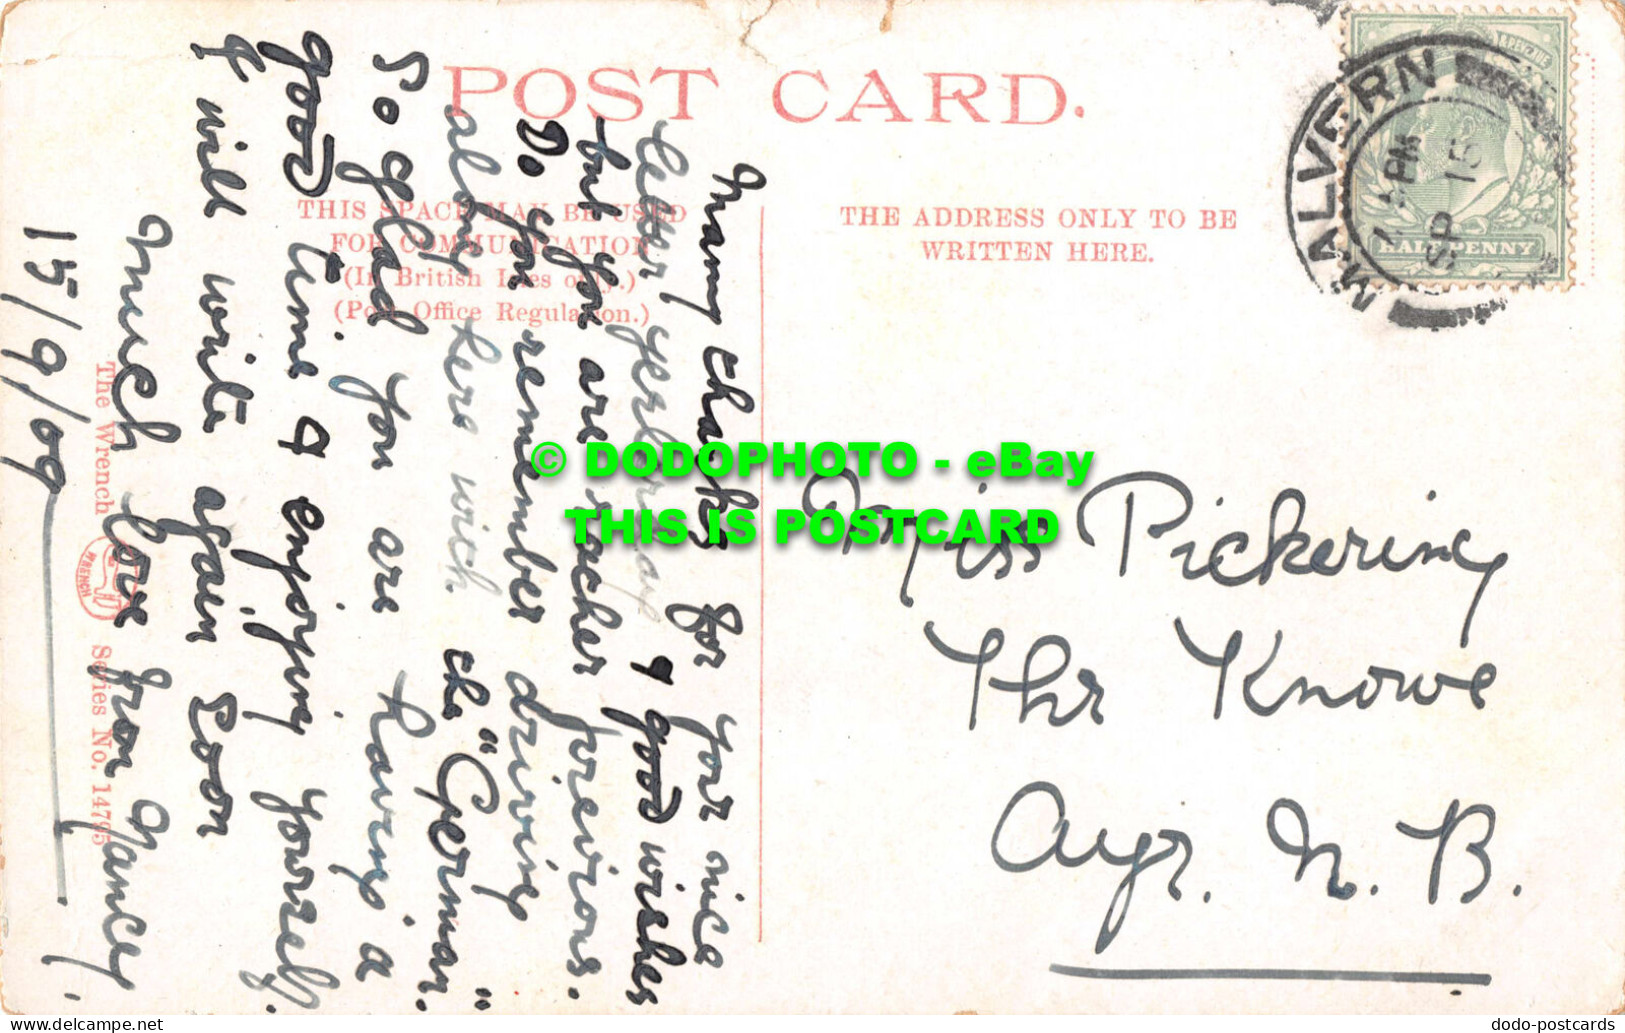 POST CARD.
THIS SPACE MAY BE USED
FOR COMMUNICATION
(In British Isles only.)
(Post Office Regulation.)
THE ADDRESS ONLY TO BE
WRITTEN HERE.
MALVERN
PM
SP 15
HALFPENNY
Many thanks for your nice
letter yesterday & good wishes
but you are rather previous.
Do you remember driving
along here with the "German."
So glad you are having a
good time & enjoying yourself.
I will write again soon
Much love from Nancy.
15/9/09
Miss Pickering
The Knowe
Ayr. N. B.
The Wrench Series No. 14795
WRENCH
© DODOPHOTO - eBay
THIS IS POSTCARD
dodo-postcards